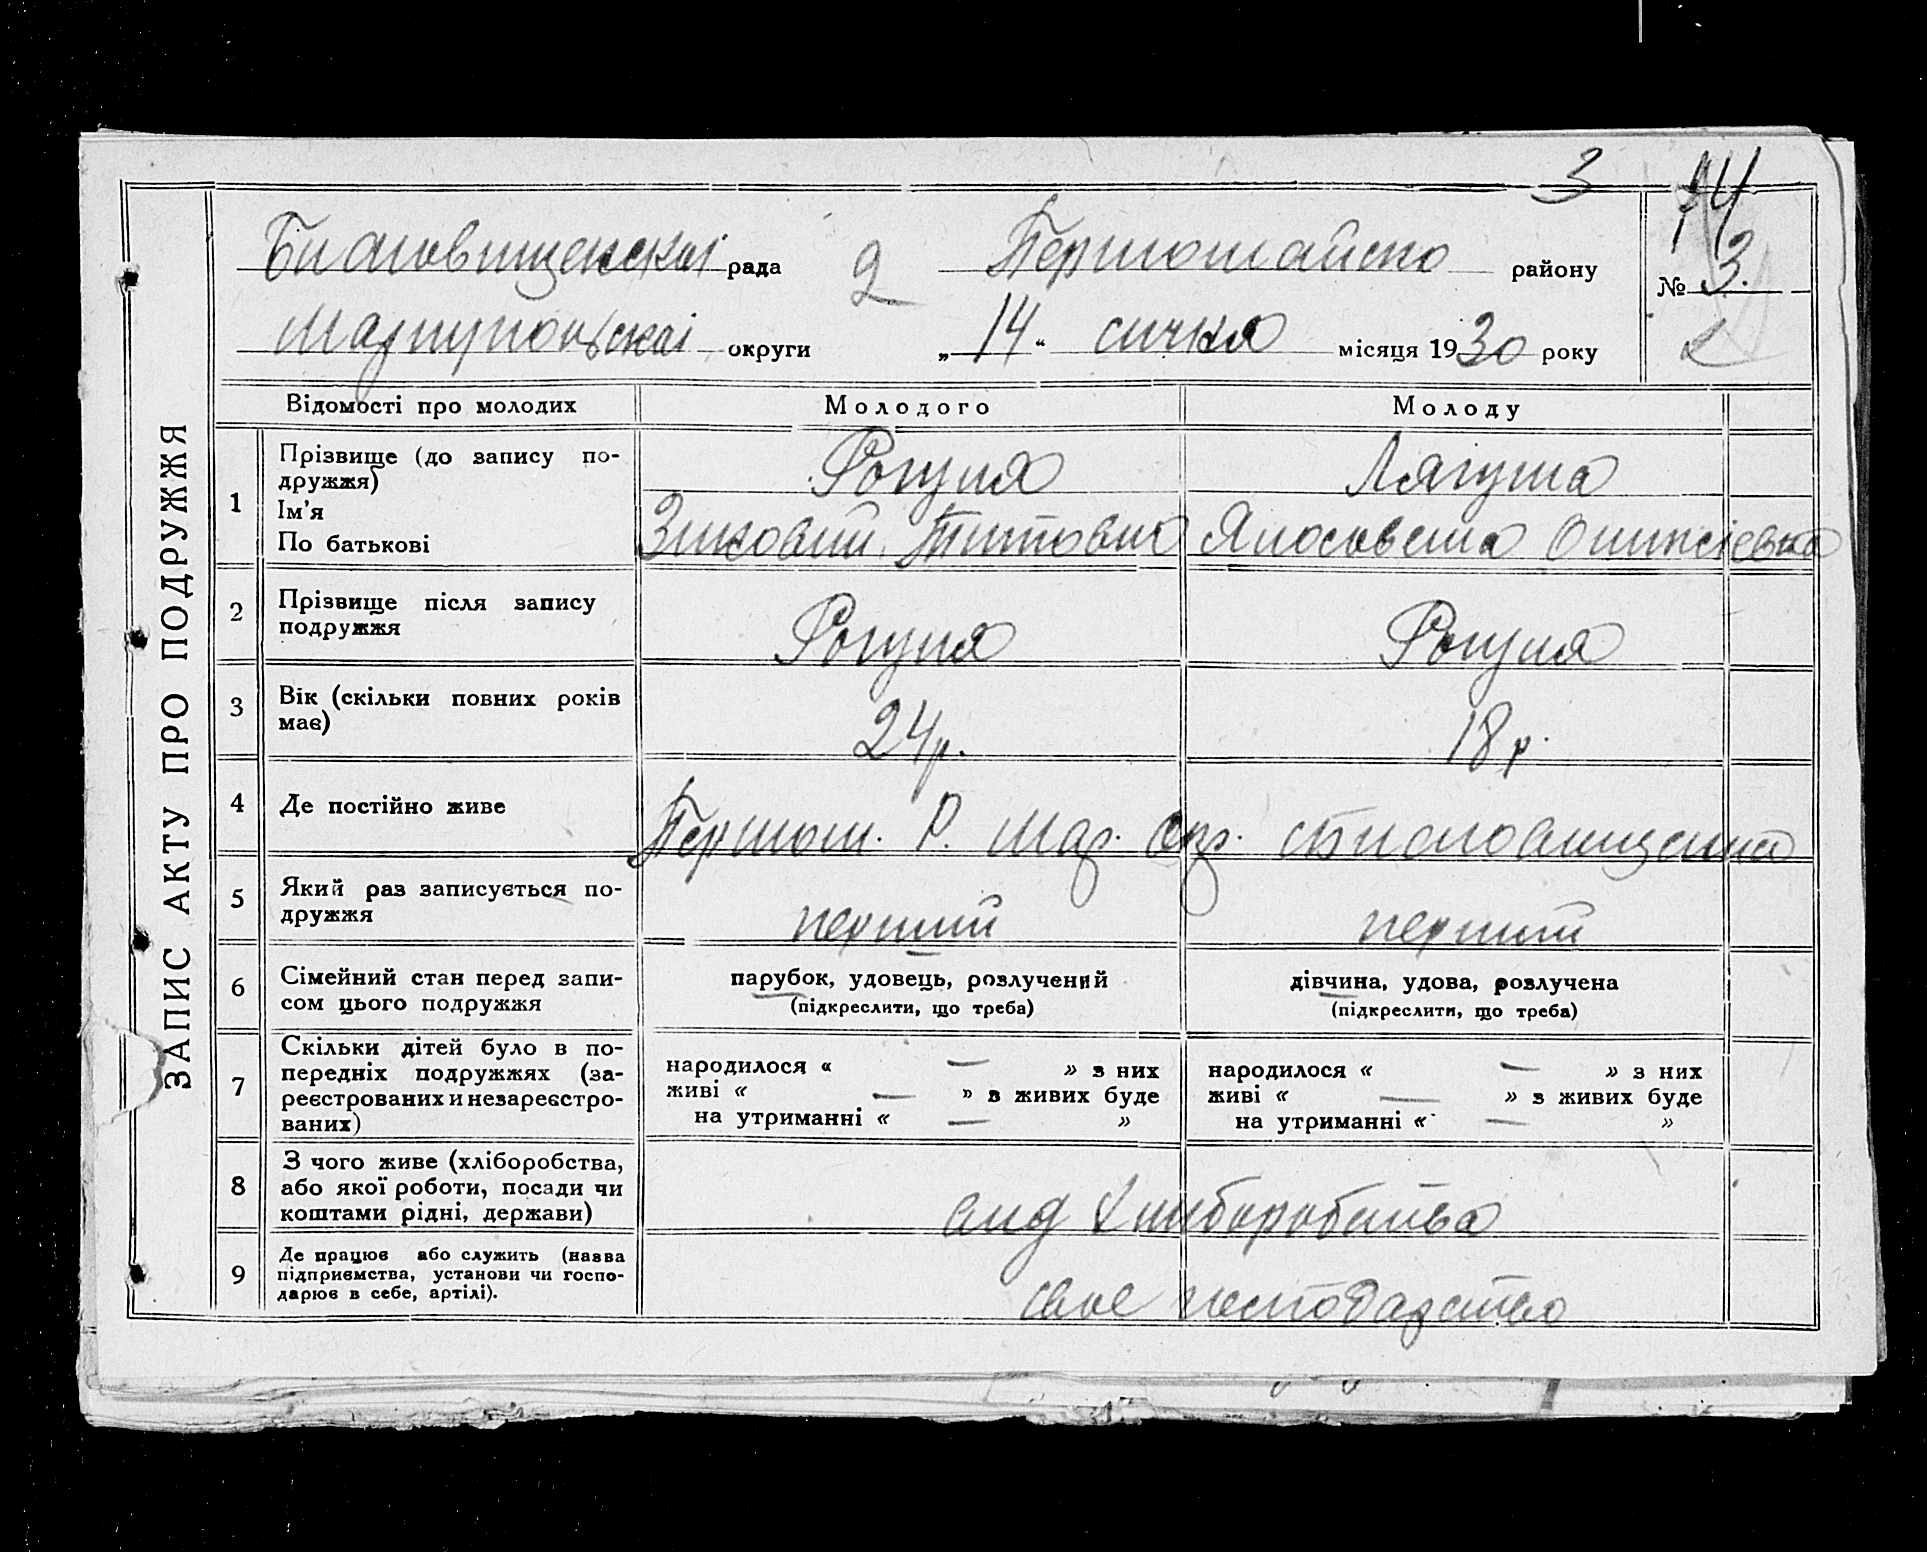 3
14
Благовищенскаі рада 2 Першомайско району № 3.
Маріупольскаі округи „14“ січня місяця 1930 року
ЗАПИС АКТУ ПРО ПОДРУЖЖЯ
Відомості про молодих Молодого Молоду
1 Прізвище (до запису подружжя)
Ім'я
По батькові
Рогуля Лягуша
Зиновий Титович
2 Прізвище після запису
подружжя
Рогуля Рогуля
3 Вік (скільки повних років
має)
24р. 18р.
4 Де постійно живе
Першом. Р. Мар. Окр.
5 Який раз записується по-
дружжя
перший перший
6 Сімейний стан перед запи-
сом цього подружжя
парубок, удовець, розлучений дівчина, удова, розлучена
(підкреслити, що треба) (підкреслити, що треба)
7 Скільки дітей було в по-
передніх подружжях (за-
реєстрованих и незареєстро-
ваних)
народилося « — » з них народилося « — » з них
живі « — » з живих буде живі « — » з живих буде
на утриманні « — » на утриманні « — »
8 З чого живе (хліборобства,
або якої роботи, посади чи
коштами рідні, держави)
від хліборобства
9 Де працює або служить (назва
підприємства, установи чи госпо-
дарює в себе, артілі).
свое господарство